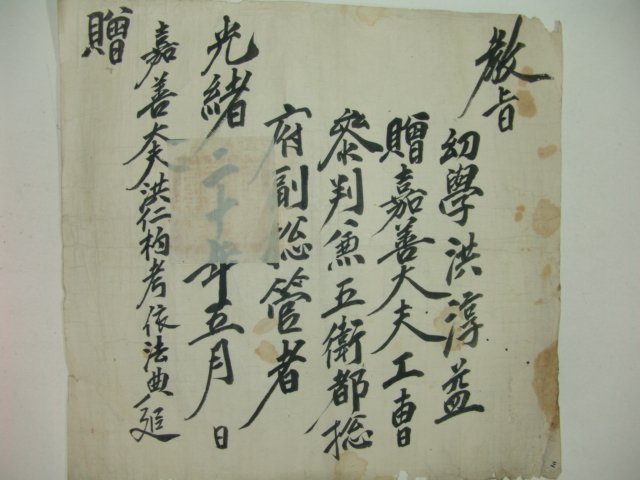 教旨
幼學洪淳益
贈嘉善大夫工曹
參判兼五衛都摠
府副摠管者
光緖二十年五月 日
嘉善大夫洪仁杓考依法典追
贈